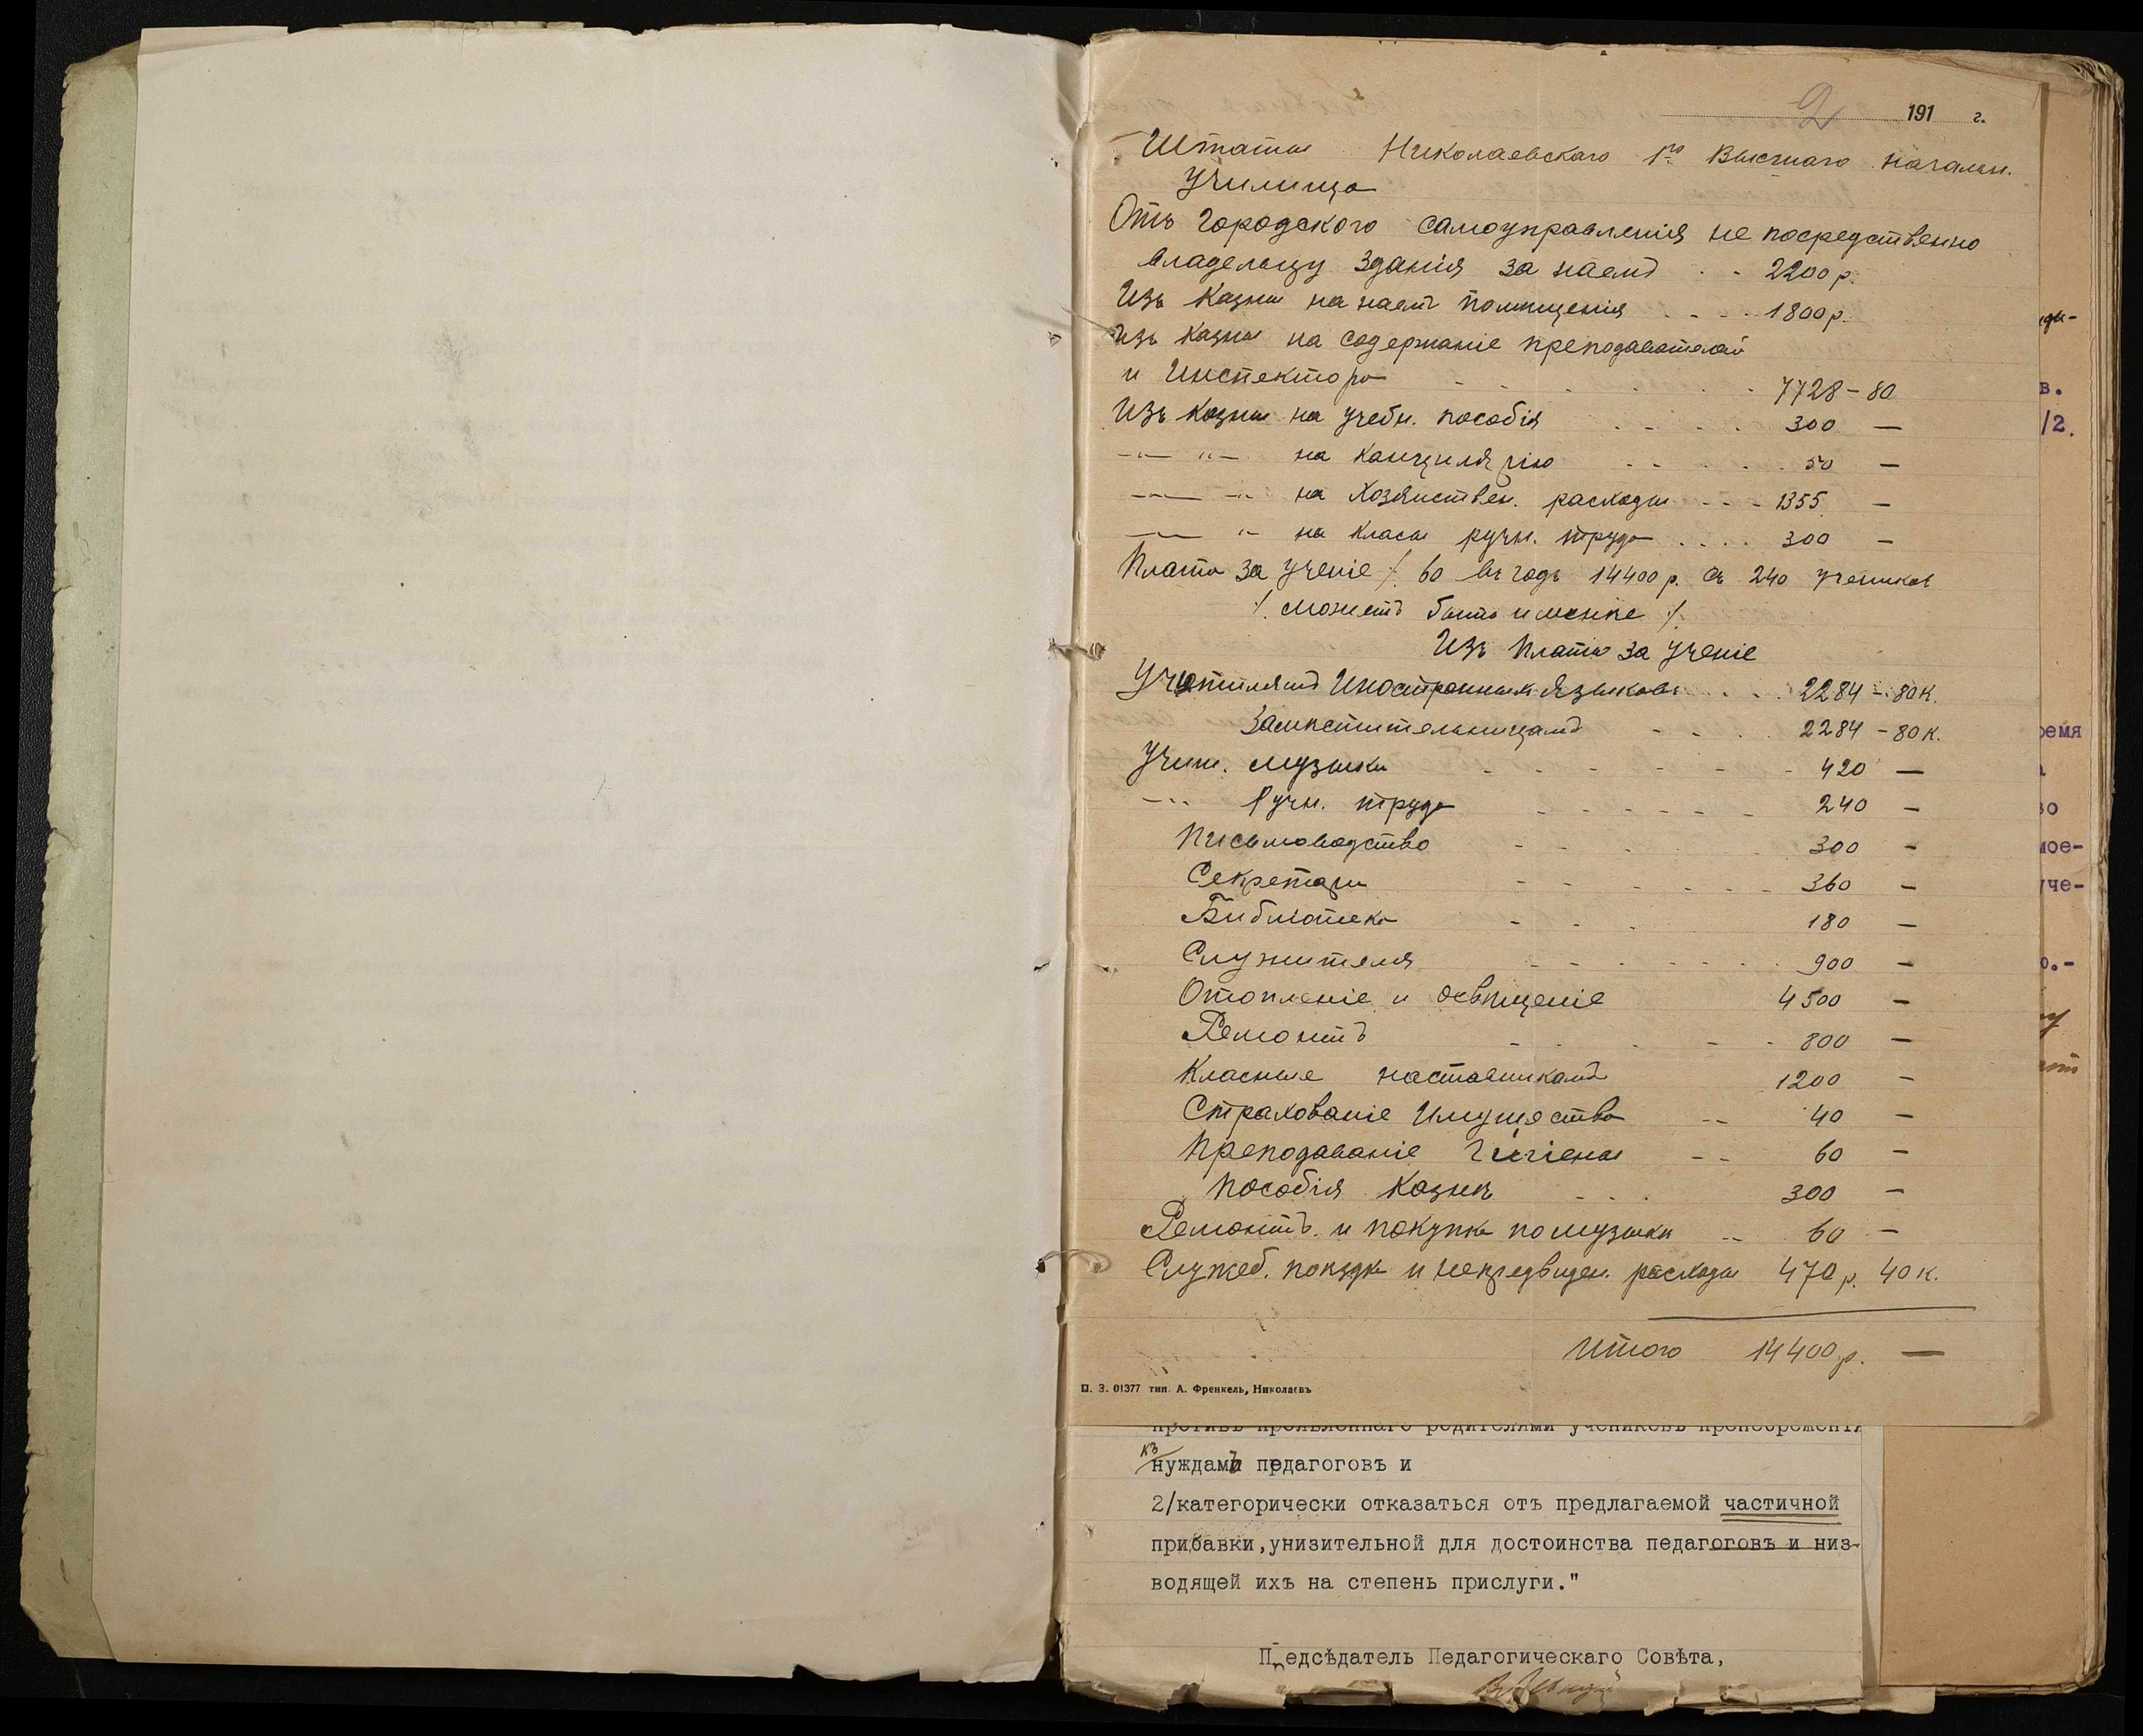 2 191 г.
Штаты Николаевскаго 1го Высшаго начальн.
Училища
Отъ Городского самоуправленія не посредственно
владельцу зданія за наемъ . . 2200 р.
Изъ Казны на наемъ помѣщенія . . . . 1800 р.
Изъ Казны на содержаніе преподавателей
и Инспектора - - - - - - 7728 - 80
Изъ Казны на учебн. пособія . . . . 300 —
—"— "— на канцелярію . . . . . 50 —
—"— —"— на хозяйствен. расходы - - - 1355 —
—"— "— на класы ручн. труда . . . . 300 —
Плата за ученіе /. 60 въ годъ 14400 р. съ 240 учениковъ
/. можетъ быть и менѣе /.
Изъ Платы за ученіе
Учителямъ Иностранныхъ Языковъ . . . 2284 - 80 к.
Замѣстительницамъ - - . . 2284 - 80 к.
Учит. музыки - - - - - - 420 —
—"— Ручн. труда - - - - - 240 —
Письмоводство - - - - 300 —
Секретари - - - - - - 360 —
Библіотека - - . 180 —
Служителя - - - - - - 900 —
Отопленіе и освѣщеніе 4500 —
Ремонтъ - - - - - 800 —
Класные наставникамъ 1200 —
Страхованіе Имущества -- 40 —
Преподаваніе Гигіены - - 60 —
Пособія Казнѣ - . . 300 —
Ремонтъ и покупка по музыки -- 60 —
Служеб. поѣздк и непредвиден. расходы 470 р. 40 к.
Итого 14400 р. —
П. З. 01377 тип. А. Френкель, Николаевъ
противъ проявленнаго родителями учениковъ пренебреженія
къ
нуждамъ педагоговъ и
2/категорически отказаться отъ предлагаемой частичной
прибавки,унизительной для достоинства педагоговъ и низ-
водящей ихъ на степень прислуги."
Предсѣдатель Педагогическаго Совѣта,
в.
/2.
ремя
во
мое-
уче-
о.-